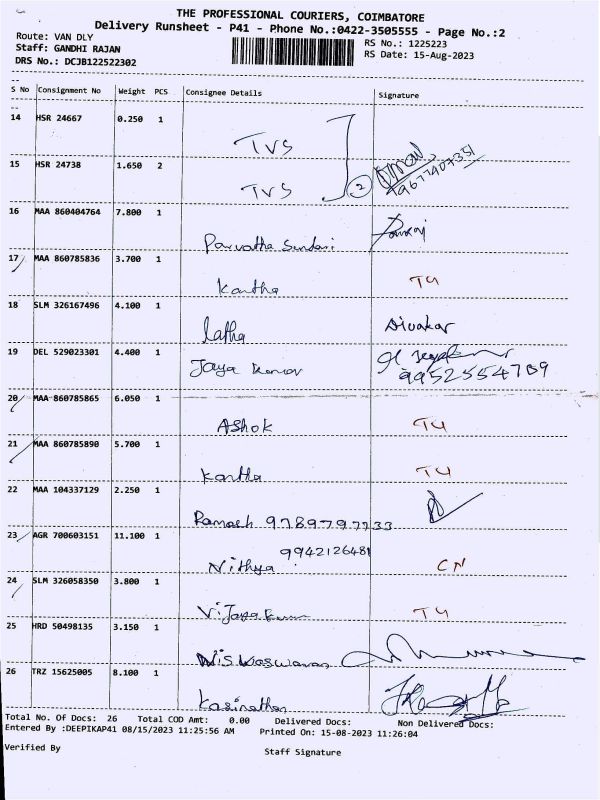 THE PROFESSIONAL COURIERS, COIMBATORE
Delivery Runsheet - P41 - Phone No.:0422-3505555 - Page No.:2
Route: VAN DLY
RS No.: 1225223
Staff: GANDHI RAJAN
RS Date: 15-Aug-2023
DRS No.: DCJB122522302
S No Consignment No Weight PCS Consignee Details Signature
14 HSR 24667 0.250 1
TVS
15 HSR 24738 1.650 2
TVS 2
16 MAA 860404764 7.800 1
Parvatha Sundari
17 MAA 860785836 3.700 1
Kantha T4
18 SLM 326167496 4.100 1
latha Divakar
19 DEL 529023301 4.400 1
Jaya Kumar 9952554789
20 MAA 860785865 6.050 1
Ashok T4
21 MAA 860785890 5.700 1
Kantha T4
22 MAA 104337129 2.250 1
Ramesh 9789797733
23 AGR 700603151 11.100 1
9942126481
Nithya CN
24 SLM 326058350 3.800 1
Vijaya Kumar T4
25 HRD 50498135 3.150 1
Wiswaswaran
26 TRZ 15625005 8.100 1
Kasinathan
Total No. Of Docs: 26 Total COD Amt: 0.00 Delivered Docs: Non Delivered Docs:
Entered By :DEEPIKAP41 08/15/2023 11:25:56 AM Printed On: 15-08-2023 11:26:04
Verified By Staff Signature